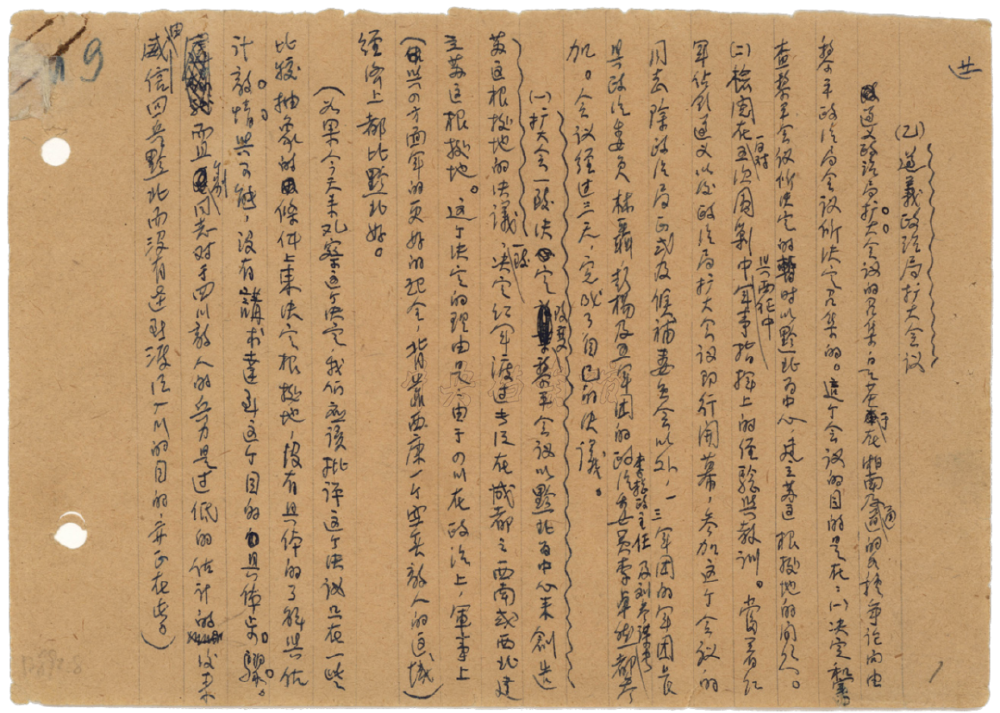 廿
(乙)遵义政治局扩大会议
遵义政治局扩大会议的召集,是基于在湘南及通道的各种争论而由
黎平政治局会议所决定召集的。这个会议的目的是在:(一)决定和审
查黎平会议所决定的暂时以黔北为中心,建立苏区根据地的问题。
(二)检阅在五次围剿中与西征中军事指挥上的经验与教训。当着红
军占领遵义以后,政治局扩大会议即行开幕,参加这个会议的
同志除政治局正式及候补委员会以外,一三军团的军团长
与政治委员林聂彭杨及五军团的政治委员李卓然李总政主任及刘参谋长都参
加。会议经过三天,完成了自己的决议。
(一)扩大会一致决定改变黎平会议以黔北为中心来创造
苏区根据地的决议,一致决定红军渡过长江在成都之西南或西北建
立苏区根据地。这个决定的理由是:由于四川在政治上,军事上
(与四方面军的更好的配合,背靠西康一个空无敌人的区域)
经济上都比黔北好。
(如果今天来观察这个决定,我们应该批评这个决议只在一些
比较抽象的条件上来决定根据地,没有具体的了解与估
计敌情与可能,没有讲求达到这个目的的具体步骤。
而且个别同志对于四川敌人的兵力是过低的估计的,后来
由威信回兵黔北而没有达到渡江入川的目的,亦正在此。)
9
1